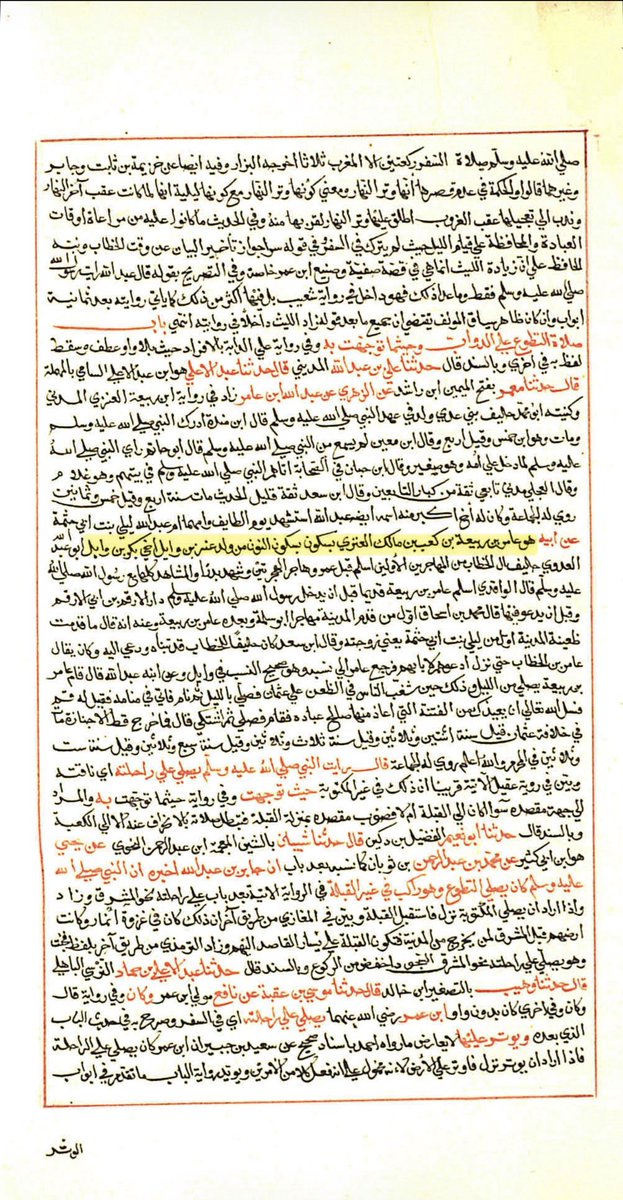 صلى الله عليه وسلم صلاة السفر ركعتين الا المغرب ثلاثا اخرجه البزار وفيه ايضا عن خزيمة بن ثابت وجابر
وغيرهما قالوا والحكمة في عدم قصرها انها وتر النهار ومعنى كونها وتر النهار مع كونها ليلية انها لما كانت عقب آخر النهار
وندب الى تعجيلها عقب الغروب اطلق عليها وتر النهار لقربها منه وفي الحديث ما كانوا عليه من مراعاة اوقات
العبادة والمحافظة على قيام الليل حيث لم يترك في السفر وفي قوله سوا جواز تأخير البيان عن وقت الخطاب ونبه
الحافظ على ان زيادة الليث انما هي في قصة صفية وصنيع ابن عمر خاصة وفي التصريح بقوله قال عبد الله رايت رسول الله
صلى الله عليه وسلم فقط وما عدا ذلك فهو داخل في رواية شعيب بل فيها اكثر من ذلك كما ياتي روايته بعد ثمانية
ابواب وان كان ظاهر سياق المولف يقتضي ان جميع ما بعد قوله زاد الليث داخلا في روايته انتهى باب
صلاة التطوع على الدواب وحيثما توجهت به وفي رواية على الدابة بالافراد حيث بلا واو عطف وسقط
لفظ به في اخرى وبالسند قال حدثنا علي بن عبد الله المديني قال حدثنا عبد الاعلى هو ابن عبد الاعلى السامي بالمهملة
قال حدثنا معمر بفتح الميمين ابن راشد عن الزهري عن عبد الله ابن عامر زاد في رواية ابن ربيعة العنزي المدني
وكنيته ابو محمد حليف بني عدي ولد في عهد النبي صلى الله عليه وسلم قال ابن مندة ادرك النبي صلى الله عليه وسلم
ومات وهو ابن خمس وقيل اربع وقال ابن معين لم يسمع من النبي صلى الله عليه وسلم قال ابو حاتم راى النبي صلى الله
عليه وسلم لما دخل على امه وهو صغير وقال ابن حبان في الصحابة اتاهم النبي صلى الله عليه وسلم في بيتهم وهو غلام
وقال العجلي مدني تابعي ثقة من كبار التابعين وقال ابن سعد ثقة قليل الحديث مات سنة اربع وقيل خمس وثمانين
روى له الجماعة وكان له اخ اكبر منه اسمه ايضا عبد الله استشهد يوم الطايف وامهما ام عبد الله ليلى بنت ابي حثمة
عن ابيه هو عامر بن ربيعة بن كعب بن مالك العنزي بسكون النون من ولد عنز بن وايل اخي بكر بن وايل ابو عبد الله
العدوي حليف آل الخطاب من المهاجرين الاولين اسلم قبل عمر وهاجر الهجرتين وشهد بدرا والمشاهد كلها مع رسول الله صلى الله
عليه وسلم قال الواقدي اسلم عامر بن ربيعة قديما قبل ان يدخل رسول الله صلى الله عليه وسلم دار الارقم بن ابي الارقم
وقبل ان يدعو فيها قال محمد بن اسحاق اول من قدم المدينة مهاجرا ابو سلمة وبعده عامر بن ربيعة وعنه انه قال ما قدمت
ظعينة المدينة اول من ليلى بنت ابي حثمة يعني زوجته وقال ابن سعد كان حليفا للخطاب قد تبناه ودعي اليه وكان يقال
عامر بن الخطاب حتى نزل ادعوهم لابايهم فرجع عامر الى نسبه وهو صحيح النسب في وايل وعن ابنه عبد الله قال قام عامر
بن ربيعة يصلي من الليل وذلك حين شغب الناس في الطعن على عثمان فصلى بالليل ثم نام فاتي في منامه فقيل له قم
فسل الله تعالى ان يعيذك من الفتنة التي اعاذ منها صالح عباده فقام فصلى ثم اشتكى قال فما خرج قط الا جنازة مات
في خلافة عثمان قيل سنة اثنتين وثلاثين وقيل سنة ثلاث وثلاثين وقيل سنة سبع وثلاثين وقيل سنة ست
وثلاثين في المحرم والله اعلم روى له الجماعة قال رايت النبي صلى الله عليه وسلم يصلي على راحلته اي ناقته
وبين في رواية عقيل الآتية قريبا ان ذلك في غير المكتوبة حيث توجهت وفي رواية حيثما توجهت به والمراد
الى جهة مقصده سوا كان الى القبلة ام لا فصوب مقصده بمنزلة القبلة فتبطل صلاته بالانحراف عنه الا الى الكعبة
وبالسند قال حدثنا ابو نعيم الفضل بن دكين قال حدثنا شيبان بالشين المعجمة ابن عبد الرحمن النحوي عن يحيى
هو ابن ابي كثير عن محمد بن عبد الرحمن بن ثوبان كما سيما بعد باب ان جابر بن عبد الله اخبره ان النبي صلى الله
عليه وسلم كان يصلي التطوع وهو راكب في غير القبلة في الرواية الاتية بعد باب على راحلته نحو المشرق وزاد
واذا اراد ان يصلي المكتوبة نزل فاستقبل القبلة وبين في المغازي من طريق آخر ان ذلك كان في غزوة انمار وكانت
ارضهم قبل المشرق لمن يخرج من المدينة فتكون القبلة على يسار القاصد اليهم وزاد الترمذي من طريق آخر بلفظ فجئت
وهو يصلي على راحلته نحو المشرق السجود اخفض من الركوع وبالسند قال حدثنا عبد الاعلى بن حماد النرسي الباهلي
قال حدثنا وهيب بالتصغير ابن خالد قال حدثنا موسى بن عقبة عن نافع مولى ابن عمر وكان وفي رواية قال
وكان وفي اخرى كان بدون واو ابن عمر رضي الله عنهما يصلي على راحلته اي في السفر وصرح به في حديث الباب
الذي بعده ويوتر عليها لا يعارض ما رواه احمد باسناد صحيح عن سعيد بن جبير ان ابن عمر كان يصلي على الراحلة
فاذا اراد ان يوتر نزل فاوتر على الارض لانه محمول على انه فعل كلا من الامرين ويويد رواية الباب ما تقدم في ابواب
الوتر